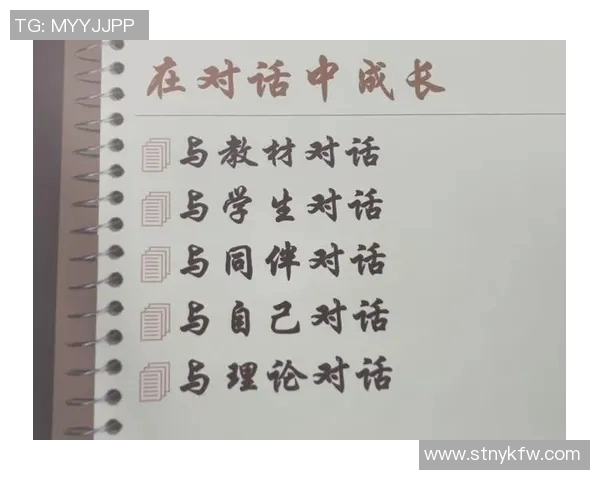 TG: MYYJJPP
在对话中成长
与教材对话
与学生对话
与同伴对话
与自己对话
与理论对话
www.stnykfw.com